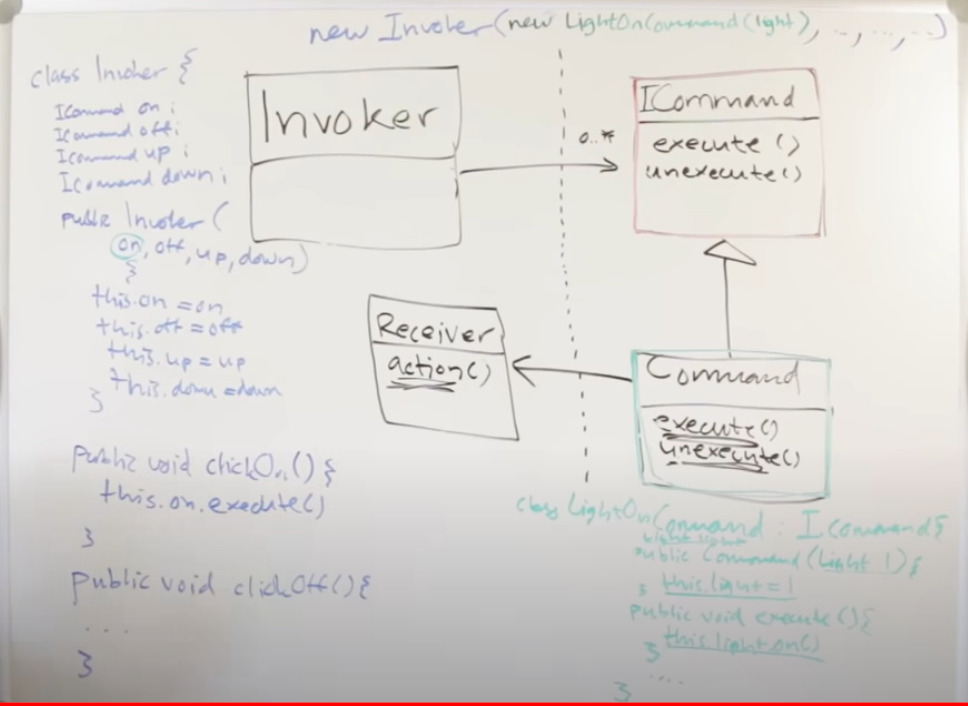 new Invoker(new LightOnCommand(light), ..., ..., ...)
class Invoker {
ICommand on;
ICommand off;
ICommand up;
ICommand down;
public Invoker(
on, off, up, down)
{
this.on = on
this.off = off
this.up = up
this.down = down
}
public void clickOn() {
this.on.execute()
}
public void clickOff() {
....
}
Invoker
0..*
ICommand
execute()
unexecute()
Receiver
action()
Command
execute()
unexecute()
class LightOnCommand : ICommand {
Light light
public Command(Light l) {
} this.light = l
public void execute() {
this.light.on()
}
....
}